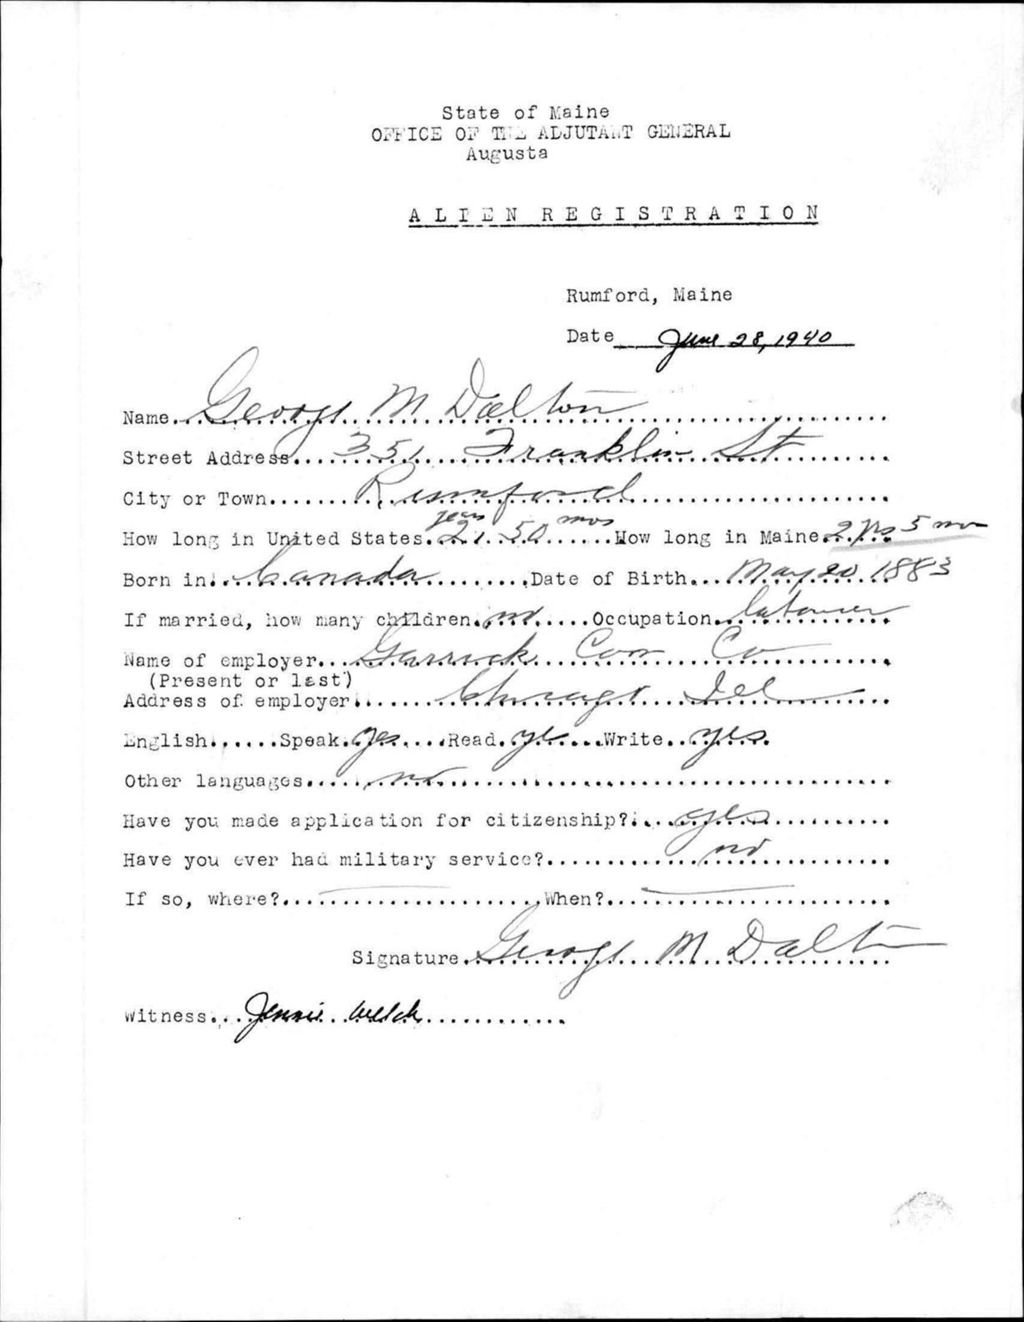 State of Maine
OFFICE OF THE ADJUTANT GENERAL
Augusta
ALIEN REGISTRATION
Rumford, Maine
Date June 28, 1940
Name George M Dalton
Street Address 351 Franklin St
City or Town Rumford
How long in United States years mos How long in Maine 2 yrs 5 mo
Born in Canada Date of Birth May 20 1883
If married, how many children no Occupation laborer
Name of employer Garrick Con Co
(Present or last)
Address of employer Chicago Ill
English Speak yes Read yes Write yes
Other languages no
Have you made application for citizenship? yes
Have you ever had military service? no
If so, where? When?
Signature George M Dalton
Witness Jennie Welch